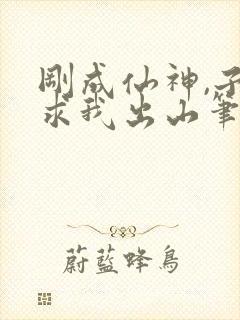 剛成仙神,子
求我出山筆
蔚藍蜂鳥